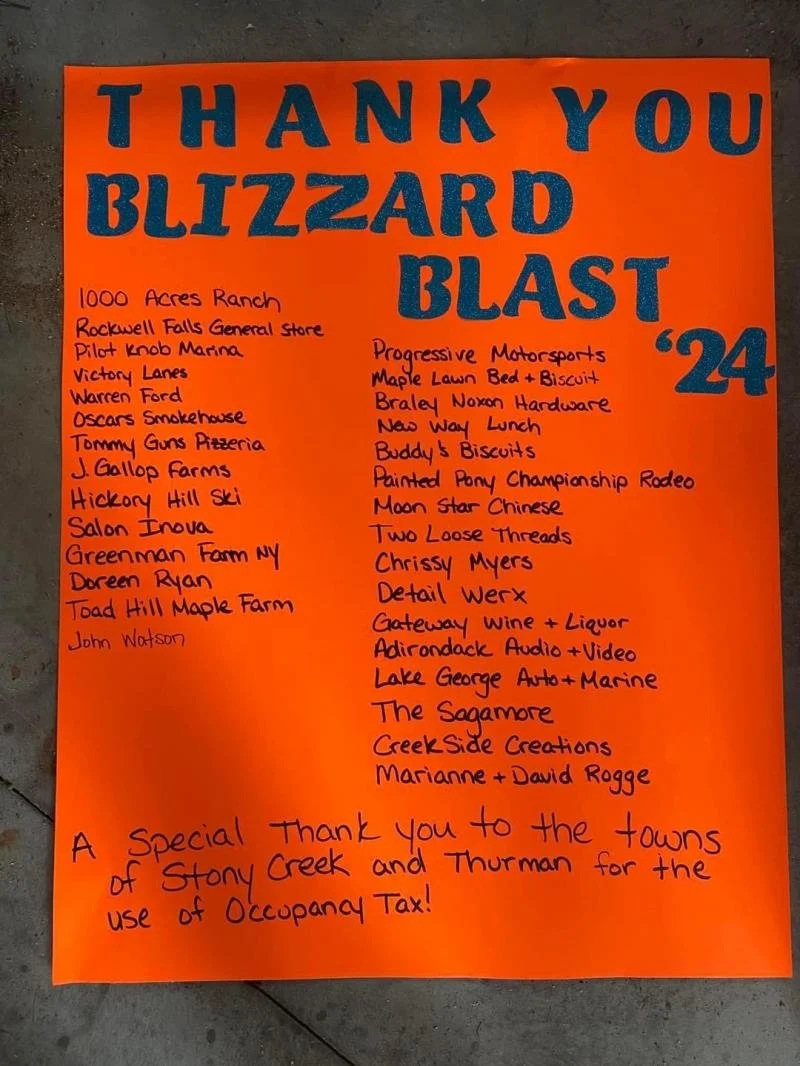 THANK YOU
BLIZZARD
BLAST
'24
1000 Acres Ranch
Rockwell Falls General Store
Pilot Knob Marina
Victory Lanes
Warren Ford
Oscars Smokehouse
Tommy Guns Pizzeria
J. Gallop Farms
Hickory Hill Ski
Salon Inova
Greenman Farm NY
Doreen Ryan
Toad Hill Maple Farm
John Watson
Progressive Motorsports
Maple Lawn Bed + Biscuit
Braley Noxon Hardware
New Way Lunch
Buddy's Biscuits
Painted Pony Championship Rodeo
Moon Star Chinese
Two Loose Threads
Chrissy Myers
Detail Werx
Gateway Wine + Liquor
Adirondack Audio + Video
Lake George Auto + Marine
The Sagamore
CreekSide Creations
Marianne + David Rogge
A Special Thank you to the towns
of Stony Creek and Thurman for the
use of Occupancy Tax!